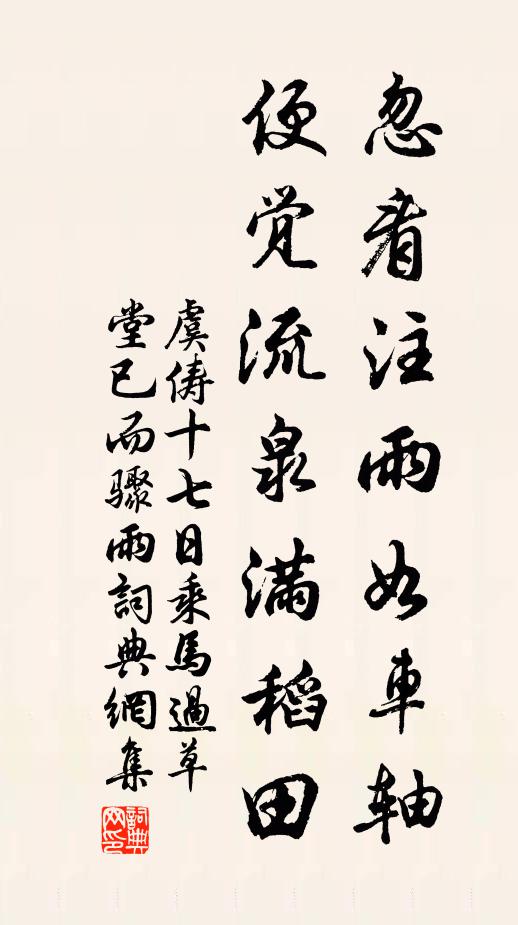 忽看注雨如車軸
便覺流泉滿稻田
虞儔十七日乘馬過草
堂已而驟雨詞典網集
詞典網印